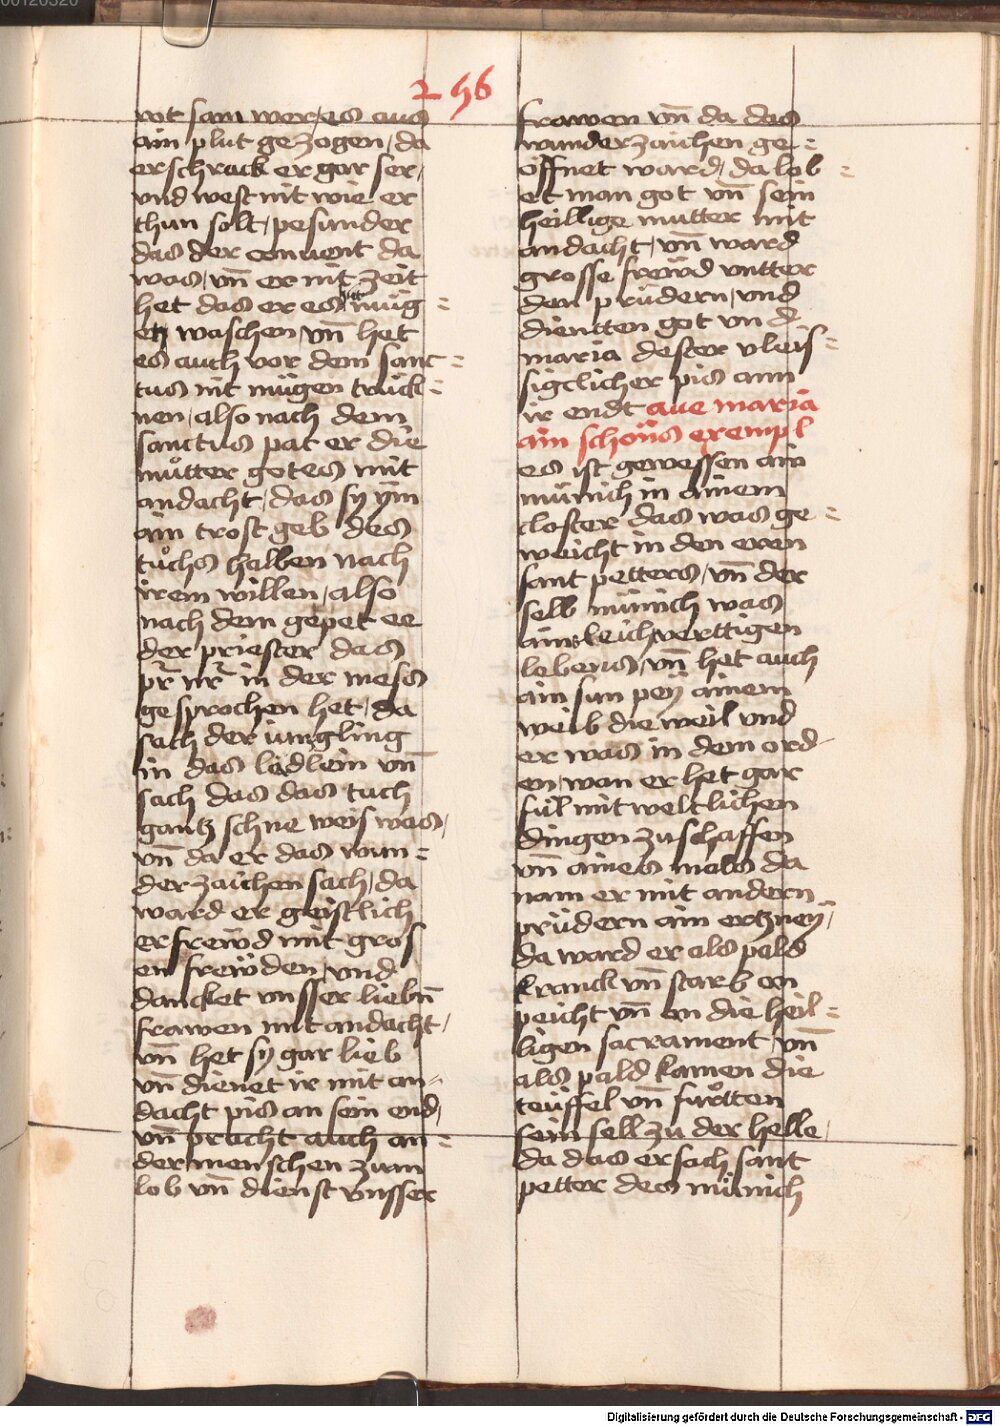 256
rot sam wer es aus
aim plut gezogen / da
erschrack er gar ser /
vnd west nit wie er
thun solt / pesunder
das der conuent da
was / vn̄ er nit zeit
het das er es müg =
en waschen / vn̄ het
es auch vor dem sanc =
tus nit mügen trückt =
nen / also nach dem
sanctus pat er die
můtter gotes mit
andacht / das sy ym
ain trost geb des
tůchs halben nach
irem willen / also
nach dem gepet ee
der priester das
pr̄ nr̄ in der mess
gesprochen het / da
sach der iungling
in das ledlein vn̄
sach das das tuch
gantz schne weis was /
vn̄ da er das wun =
derzaichen sach / da
ward er geistlich
erfrewd mit gros
en frewden / vnd
dancket vnsser liebn̄
frawen mit andacht /
vn̄ het sy gar lieb
vn̄ dienet ir mit an =
dacht pis an sein end /
vn̄ pracht auch an =
der menschen zum
lob vn̄ dienst vnsser
frawen vn̄ da das
wunderzaichen ge =
öffnet ward / da lob =
et man got vn̄ sein
heillige mutter mit
andacht / vn̄ ward
grosse frewd vntter
den prüdern / vnd
dientten got vn d
maria dester vleis =
sigclicher pis ann
ir endt aue maria
ain schöns exempl
es ist gewessen ain
münich in ainem
closter das was ge =
weicht in den eren
sant petters / vn̄ der
selb münich was
ains leichtverttigen
lebens / vn̄ het auch
ain sun pey ainem
weib die weil vnd
er was in dem ord
en / wan er het gar
fül mit weltlichen
dingen zu schaffen
vn̄ aines mals da
nam er mit andern
prüdern ain ertzney /
da ward er als pald
kranck vn̄ starb on
peicht vn̄ on die heil =
ligen sacrament / vn̄
als pald kamen die
teüffel vn̄ fůrtten
sein sell zu der helle /
da das ersach sant
petter des münich
Digitalisierung gefördert durch die Deutsche Forschungsgemeinschaft - DFG